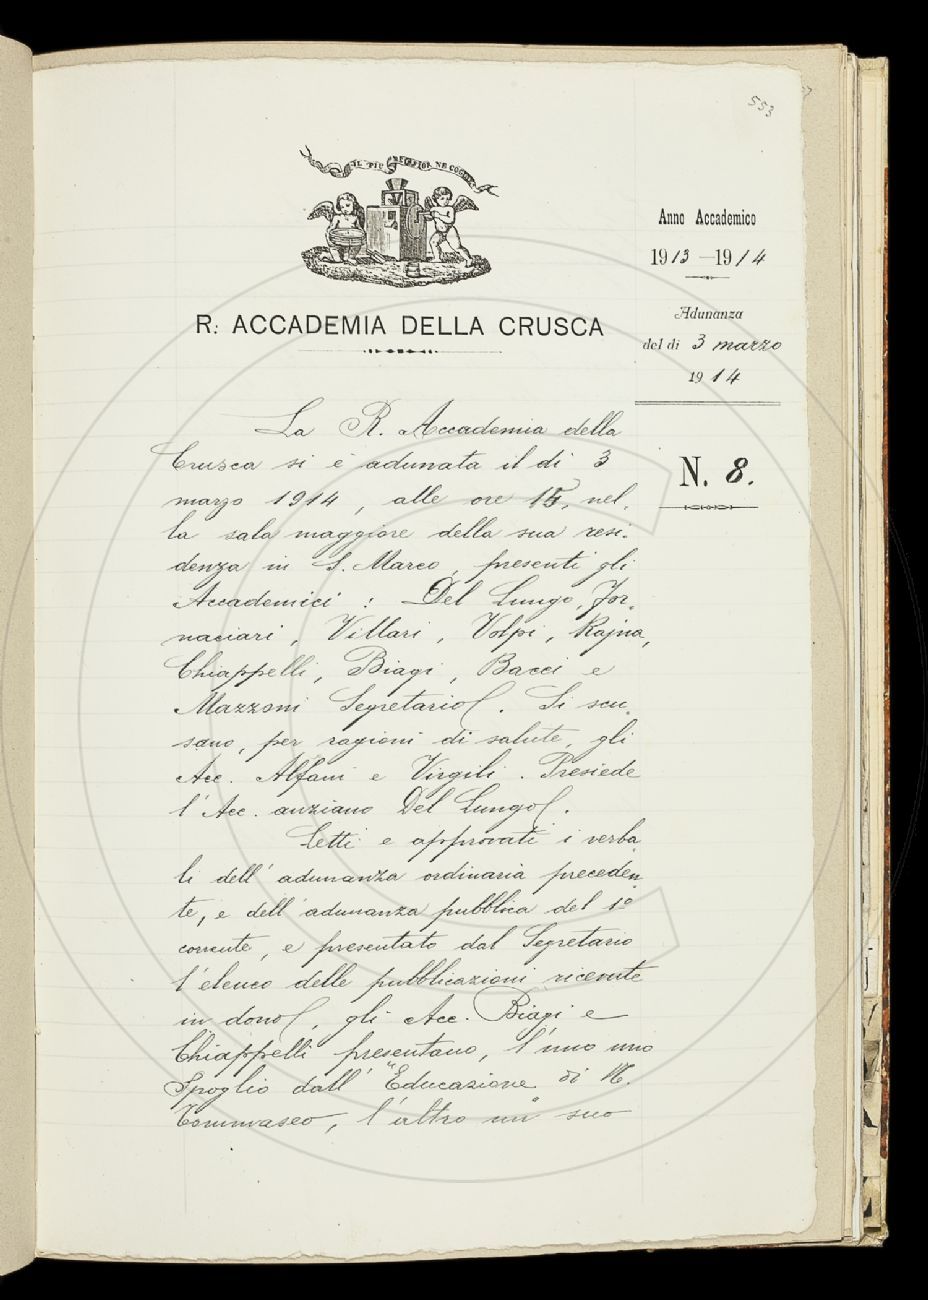 553
IL PIÙ BEL FIOR NE COGLIE
Anno Accademico
1913-1914
R: ACCADEMIA DELLA CRUSCA
Adunanza
del dì 3 marzo
1914
N. 8.
La R. Accademia della
Crusca si è adunata il dì 3
marzo 1914, alle ore 15, nel-
la sala maggiore della sua resi-
denza in S. Marco, presenti gli
Accademici: Del Lungo, For-
naciari, Villari, Volpi, Rajna,
Chiappelli, Biagi, Bacci e
Mazzoni Segretario. Si scu-
sano, per ragioni di salute, gli
Acc. Alfani e Virgili. Presiede
l'Acc. anziano Del Lungo.
Letti e approvati i verba-
li dell'adunanza ordinaria preceden-
te, e dell'adunanza pubblica del 1º
corrente, e presentato dal Segretario
l'elenco delle pubblicazioni ricevute
in dono, gli Acc. Biagi e
Chiappelli presentano, l'uno uno
Spoglio dall'"Educazione di N.
Tommaseo, l'altro un suo